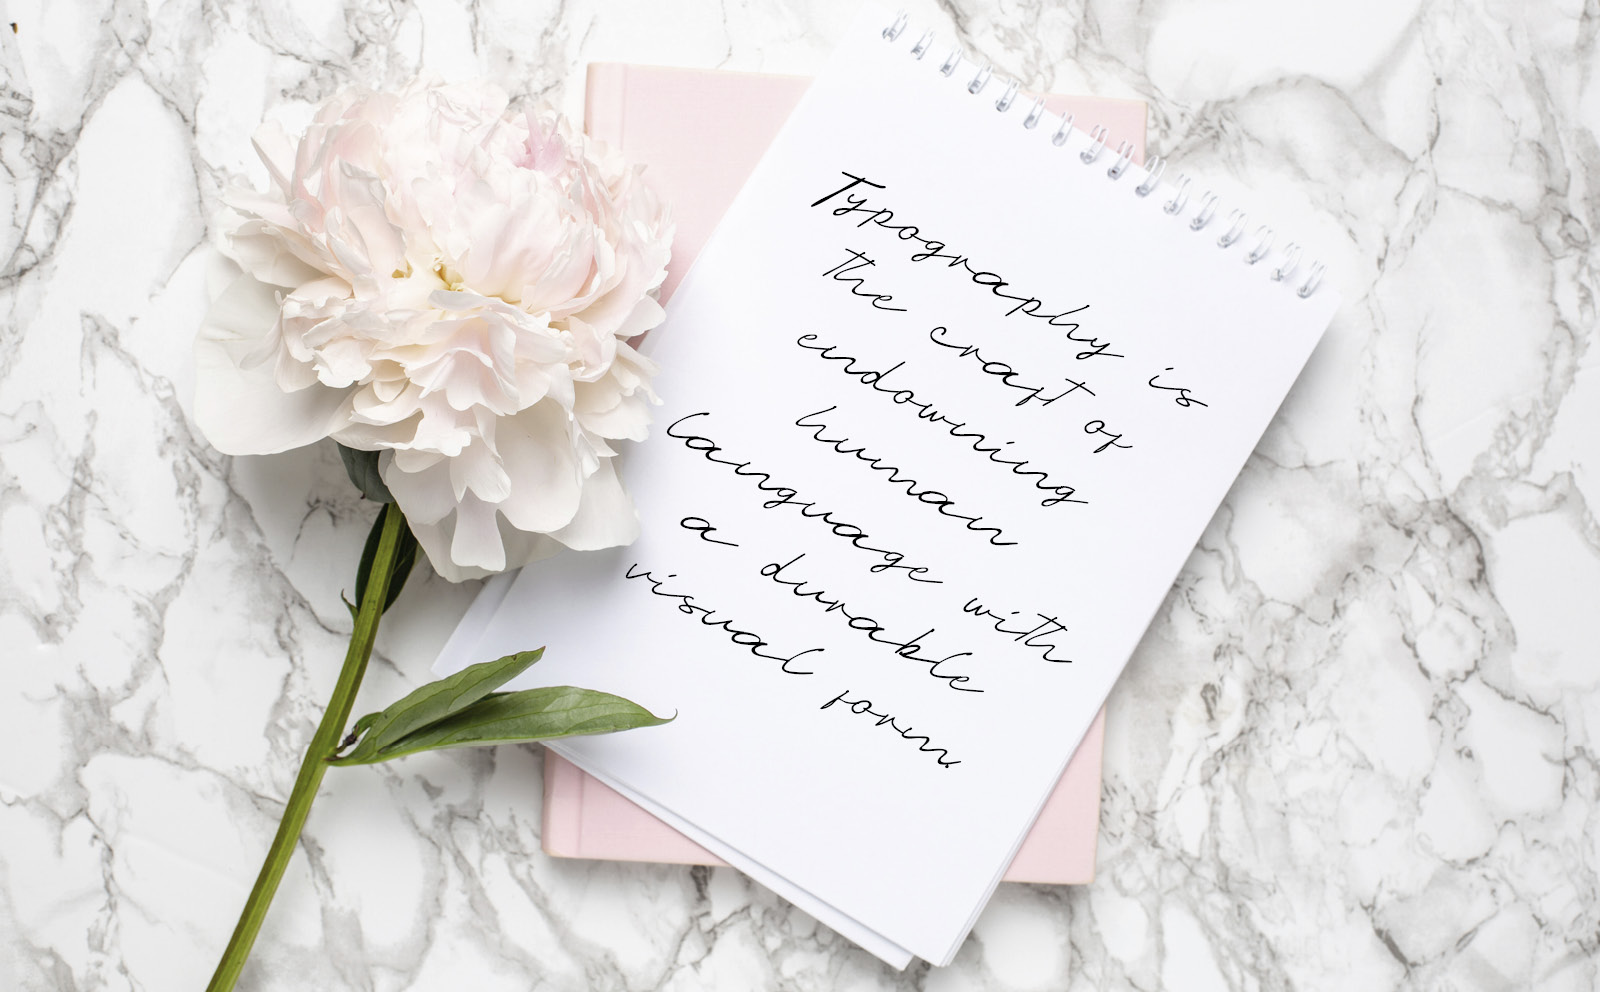 Typography is
the craft of
endowning
human
language with
a durable
visual form.